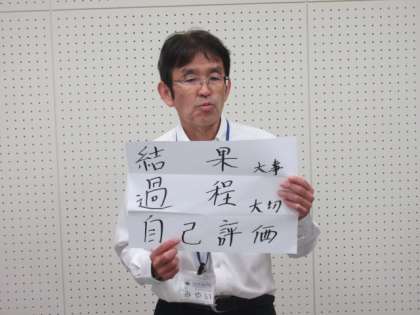 結果 大事
過程 大切
自己評価